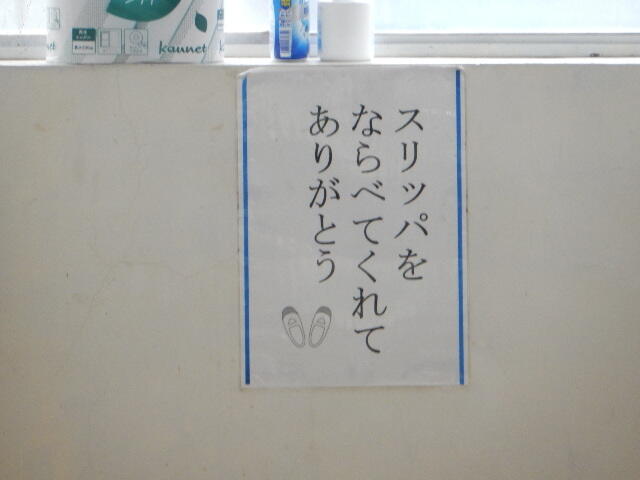 スリッパを
ならべてくれて
ありがとう
kaunet